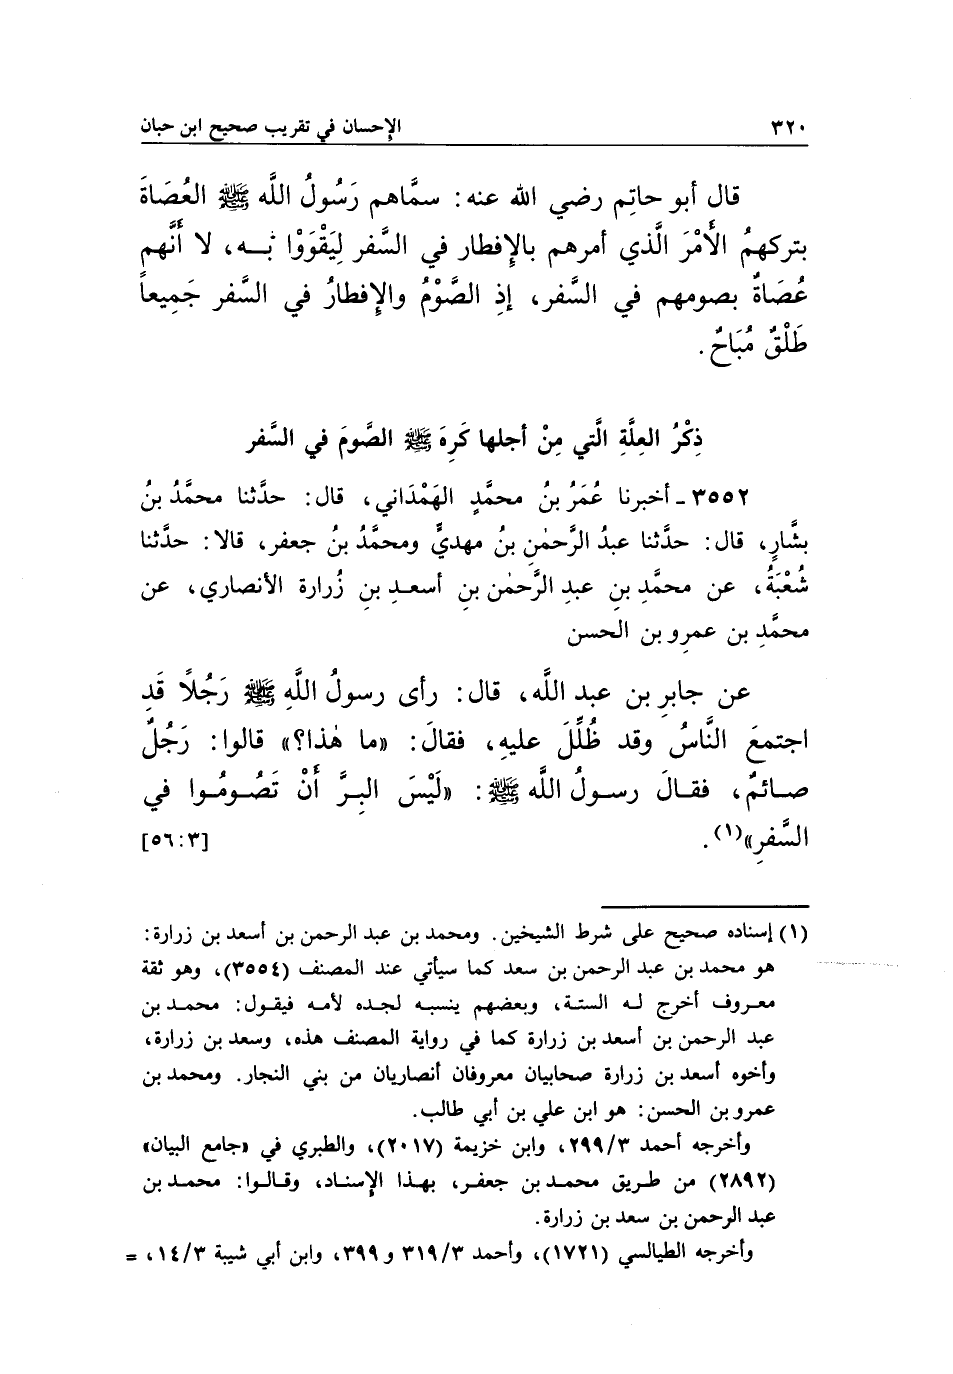 ٣٢٠ الإحسان في تقريب صحيح ابن حبان
قال أبو حاتِم رضي الله عنه: سمَّاهم رَسُولُ اللَّه ﷺ العُصَاةَ
بتركهمُ الأَمْرَ الَّذي أمرهم بالإفطار في السَّفر لِيَقْوَوْا بـه، لا أَنَّهم
عُصَاةٌ بصومهم في السَّفر، إذِ الصَّوْمُ والإفطارُ في السَّفر جَمِيعاً
طَلْقٌ مُبَاحٌ.
ذِكْرُ العِلَّةِ الَّتي مِنْ أجلها كَرِهَ ﷺ الصَّومَ في السَّفر
٣٥٥٢ - أخبرنا عُمَرُ بنُ محمَّدٍ الهَمْدَاني، قال: حدَّثنا محمَّدُ بنُ
بشَّارٍ، قال: حدَّثنا عبدُ الرَّحمٰنِ بنُ مهديٍّ ومحمَّدُ بنُ جعفر، قالا: حدَّثنا
شُعْبَةُ، عن محمَّدِ بنِ عبدِ الرَّحمٰن بنِ أسعدِ بنِ زُرارة الأنصاري، عن
محمَّدِ بن عمرِو بن الحسن
عن جابرِ بن عبد اللَّه، قال: رأى رسولُ اللَّهِ ﷺ رَجُلًا قَدِ
اجتمعَ النَّاسُ وقد ظُلِّلَ عليهِ، فقالَ: «ما هٰذا؟» قالوا: رَجُلٌ
صائمٌ، فقالَ رسولُ اللَّه ﷺ: «لَيْسَ البِرَّ أَنْ تَصُومُوا في
السَّفرِ»(١). [٥٦:٣]
(١) إسناده صحيح على شرط الشيخين. ومحمد بن عبد الرحمن بن أسعد بن زرارة:
هو محمد بن عبد الرحمن بن سعد كما سيأتي عند المصنف (٣٥٥٤)، وهو ثقة
معروف أخرج له الستة، وبعضهم ينسبه لجده لأمه فيقول: محمد بن
عبد الرحمن بن أسعد بن زرارة كما في رواية المصنف هذه، وسعد بن زرارة،
وأخوه أسعد بن زرارة صحابيان معروفان أنصاريان من بني النجار. ومحمد بن
عمرو بن الحسن: هو ابن علي بن أبي طالب.
وأخرجه أحمد ٢٩٩/٣، وابن خزيمة (٢٠١٧)، والطبري في «جامع البيان»
(٢٨٩٢) من طريق محمد بن جعفر، بهذا الإسناد، وقالوا: محمد بن
عبد الرحمن بن سعد بن زرارة.
وأخرجه الطيالسي (١٧٢١)، وأحمد ٣١٩/٣ و٣٩٩، وابن أبي شيبة ١٤/٣، =